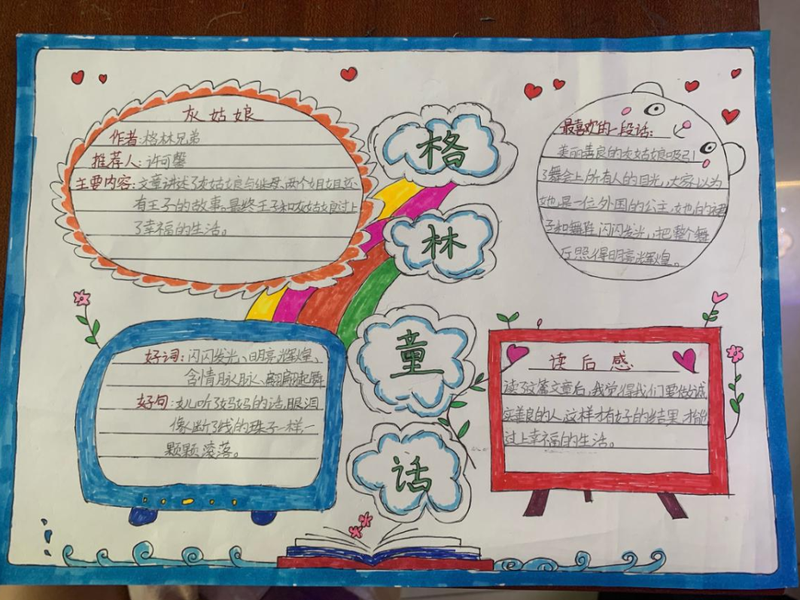 灰姑娘
作者:格林兄弟
推荐人:许可馨
主要内容:文章讲述了灰姑娘与继母、两个姐姐还
有王子的故事。最终王子和灰姑娘过上
了幸福的生活。
格
林
童
话
最喜欢的一段话:
美丽善良的灰姑娘吸引
了舞会上所有人的目光,大家以为
她是一位外国的公主,她的
子和舞鞋闪闪发光,把整个舞
厅照得明亮辉煌。
好词:闪闪发光、明亮辉煌、
含情脉脉、翩翩起舞
好句:女儿听了妈妈的话,眼泪
像断了线的珠子一样一
颗颗滚落。
读后感
读了这篇文章后,我觉得我们要做诚
实善良的人,这样才有好的结果,才能
过上幸福的生活。